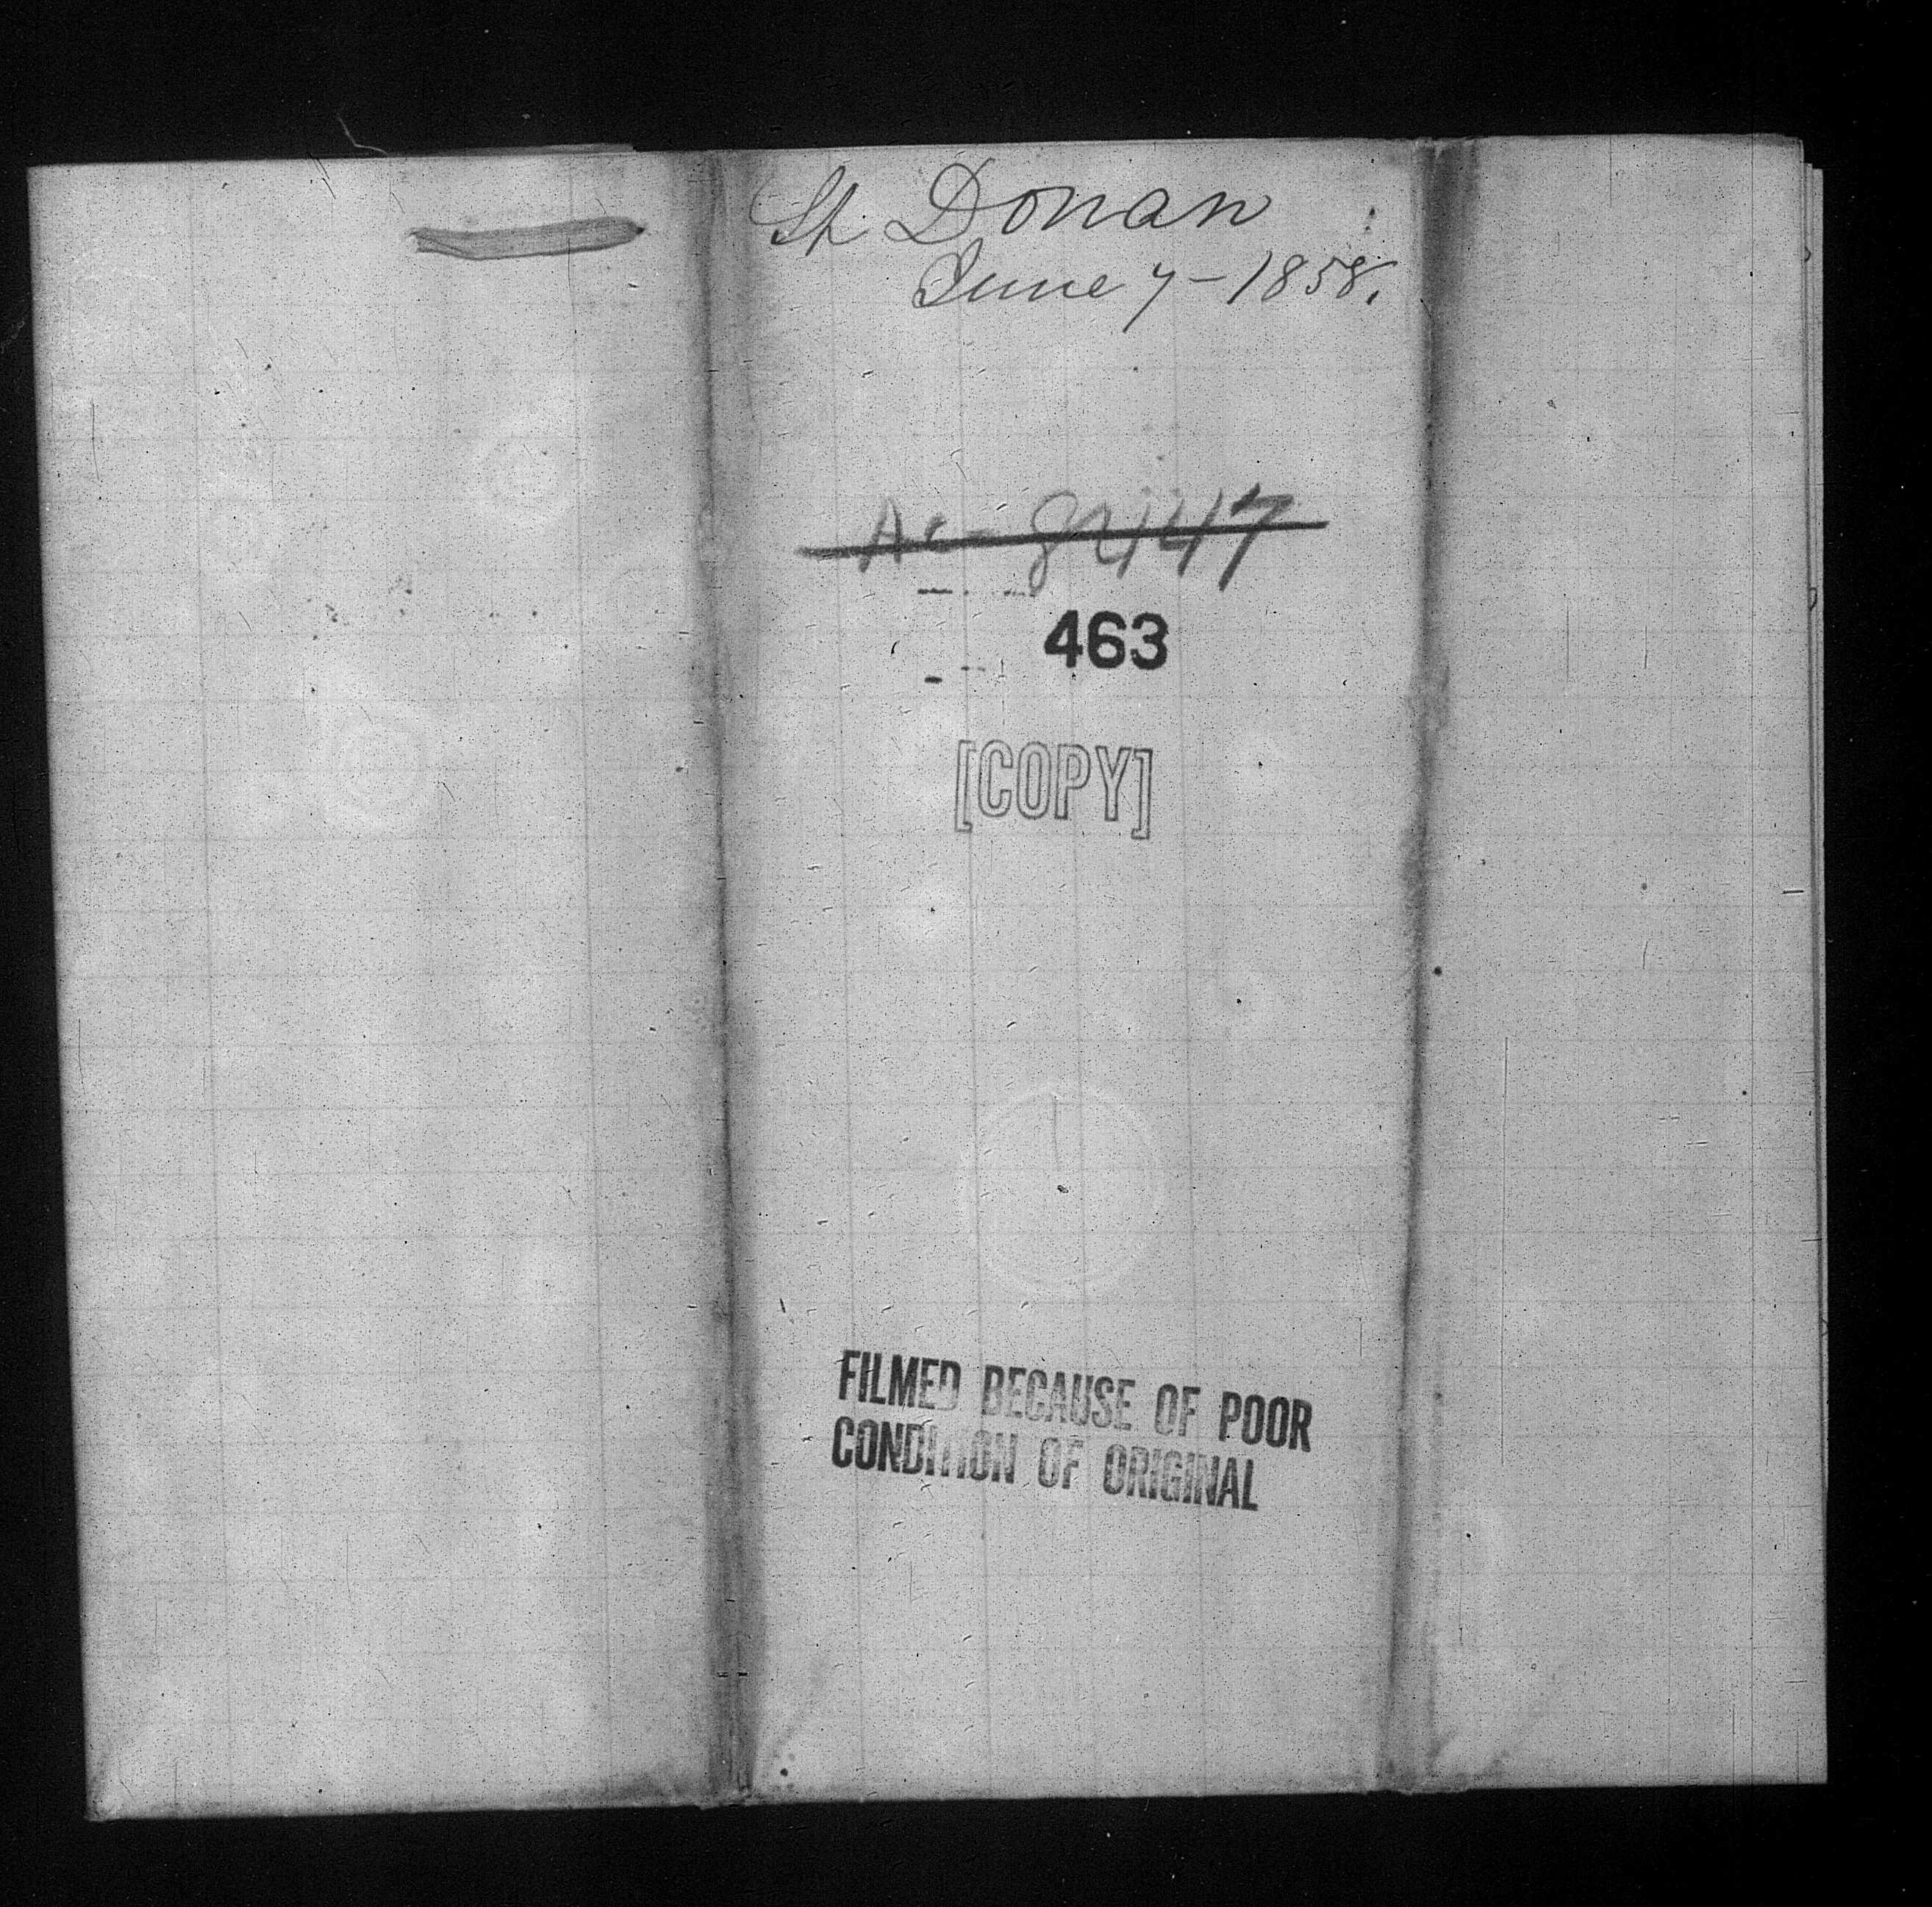 St Donan
June 7-1858.
463
[COPY]
FILMED BECAUSE OF POOR
CONDITION OF ORIGINAL